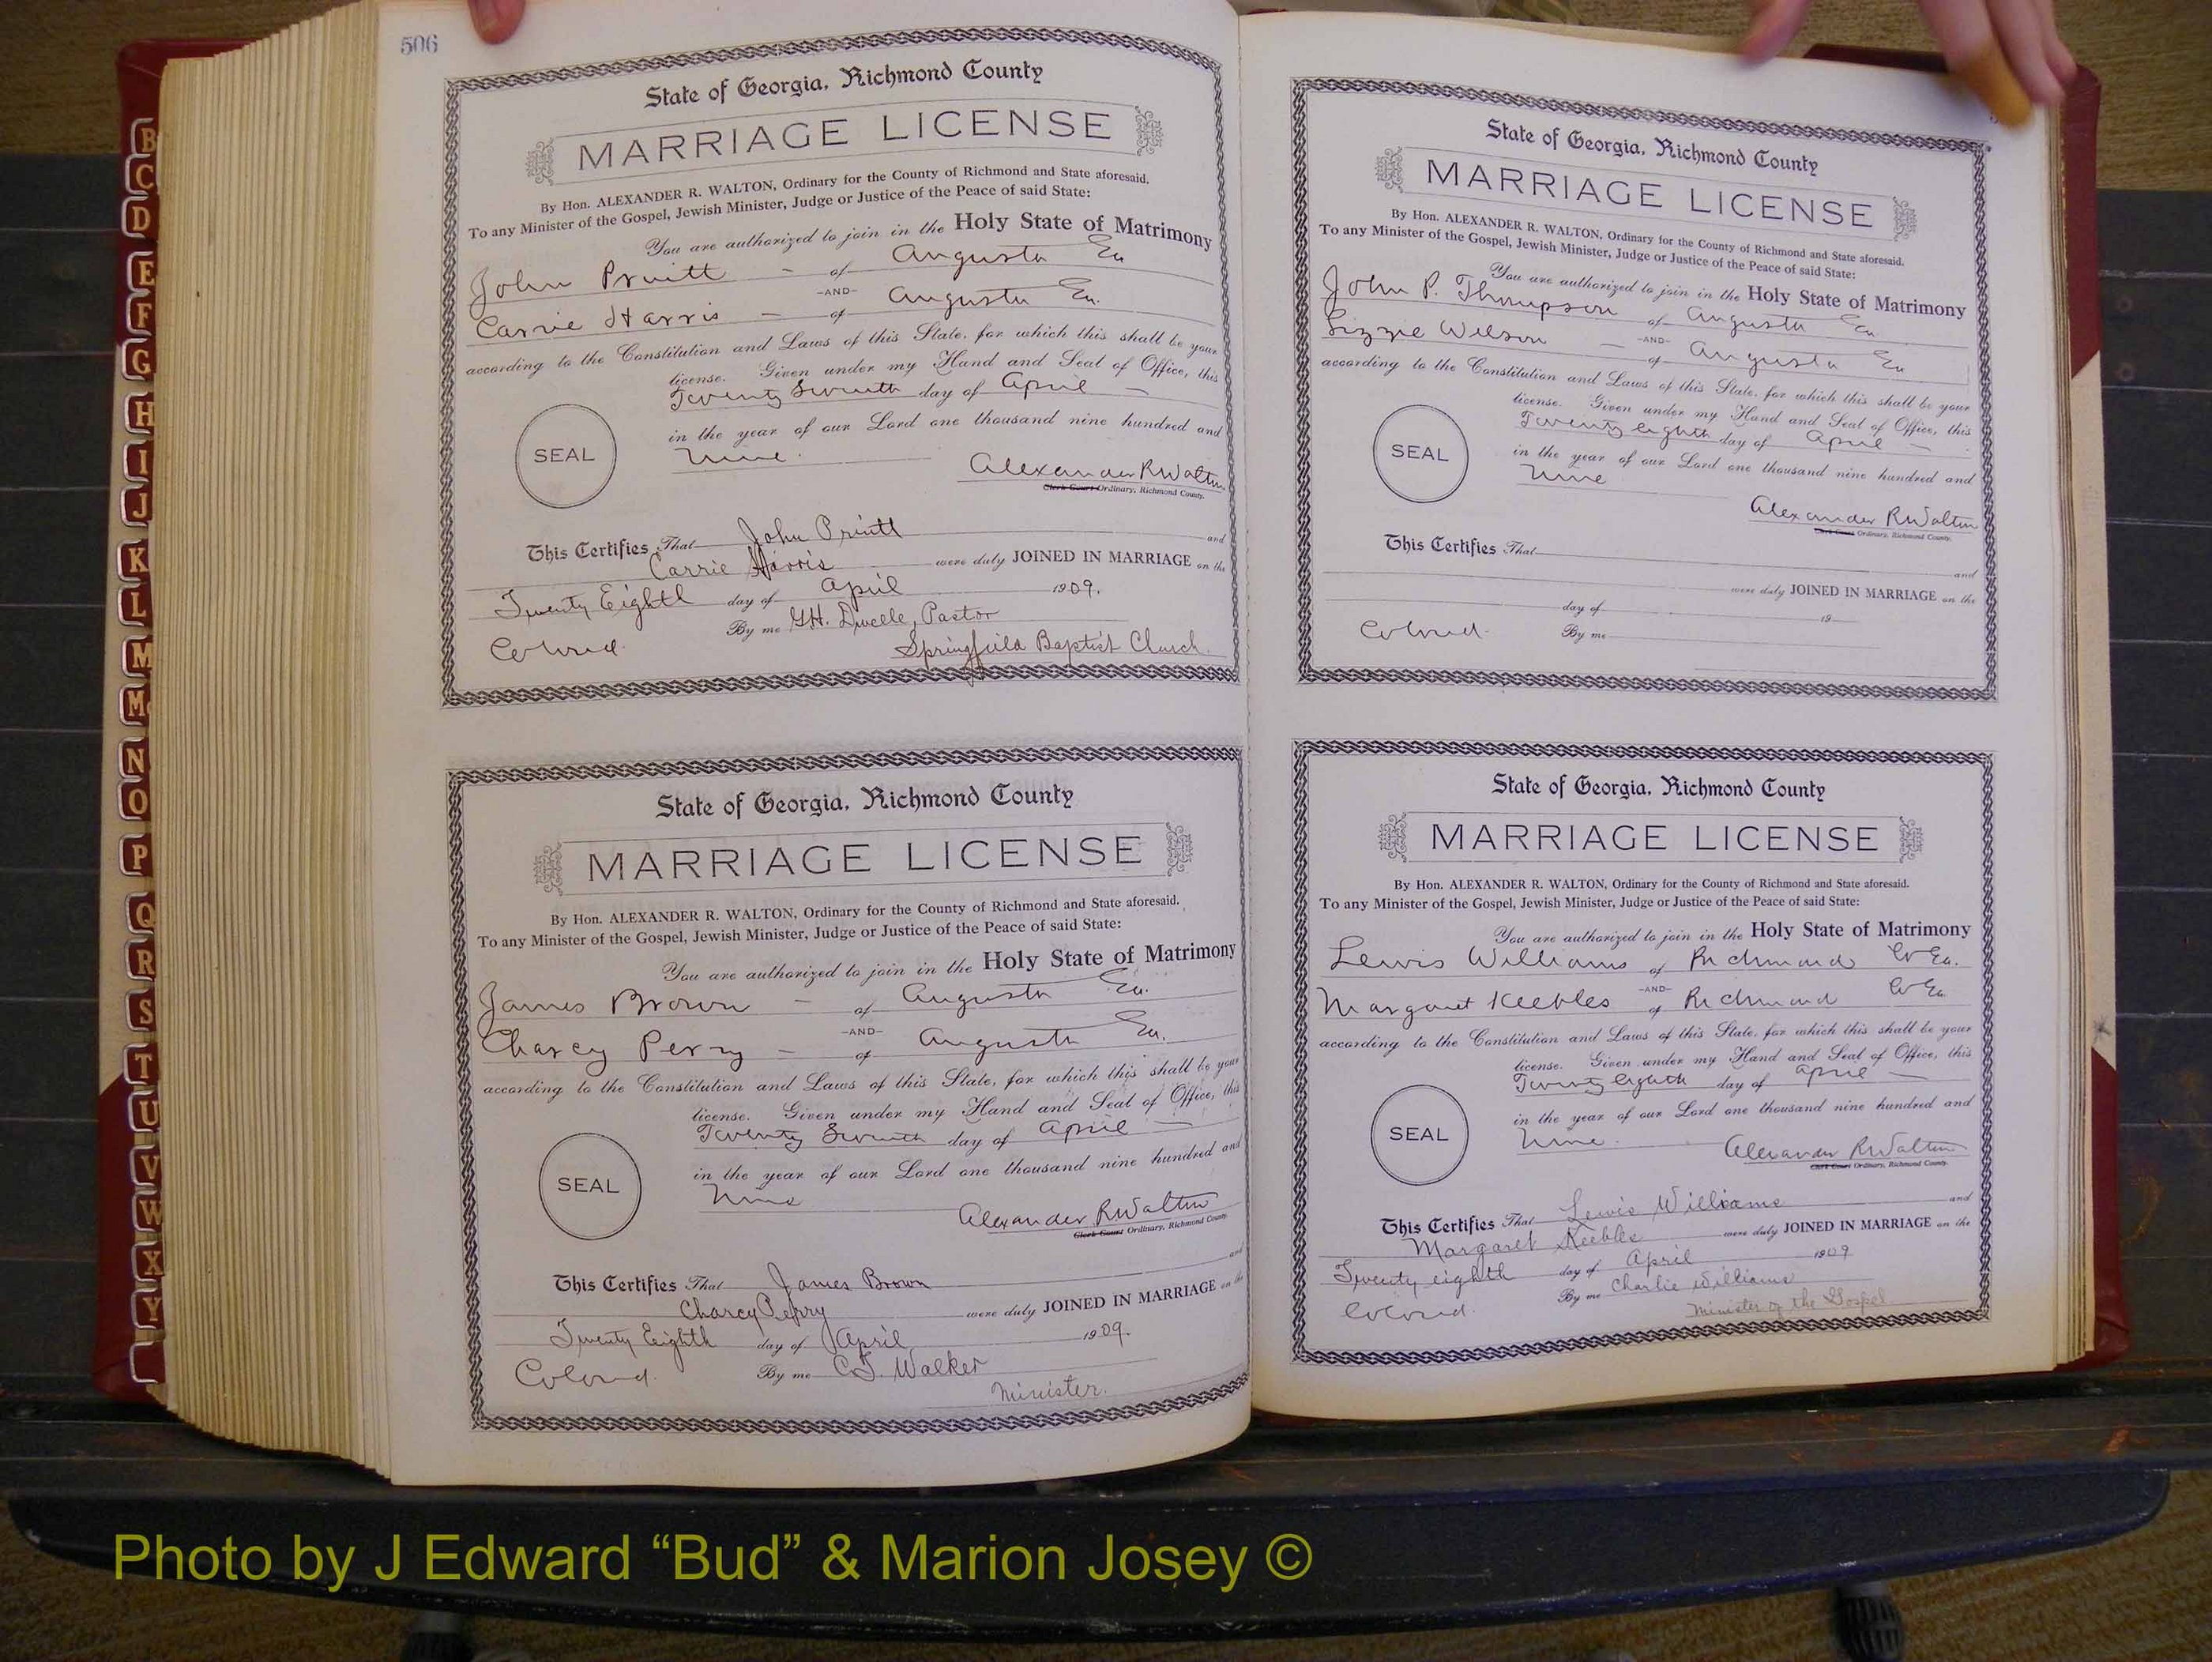 506
State of Georgia, Richmond County
MARRIAGE LICENSE
By Hon. ALEXANDER R. WALTON, Ordinary for the County of Richmond and State aforesaid.
To any Minister of the Gospel, Jewish Minister, Judge or Justice of the Peace of said State:
You are authorized to join in the Holy State of Matrimony
John Pruitt - of Augusta Ga
-AND-
Carrie Harris - of Augusta Ga.
according to the Constitution and Laws of this State, for which this shall be your
license. Given under my Hand and Seal of Office, this
Twenty Seventh day of April
in the year of our Lord one thousand nine hundred and
SEAL
Nine.
Alexander R Walton
Clerk Court Ordinary, Richmond County.
This Certifies That John Pruitt and
Carrie Harris were duly JOINED IN MARRIAGE on the
Twenty Eighth day of April 1909.
By me G.H. Dwelle, Pastor
Colored Springfield Baptist Church.
State of Georgia, Richmond County
MARRIAGE LICENSE
By Hon. ALEXANDER R. WALTON, Ordinary for the County of Richmond and State aforesaid.
To any Minister of the Gospel, Jewish Minister, Judge or Justice of the Peace of said State:
You are authorized to join in the Holy State of Matrimony
James Brown - of Augusta Ga.
-AND-
Charcy Perry - of Augusta Ga.
according to the Constitution and Laws of this State, for which this shall be your
license. Given under my Hand and Seal of Office, this
Twenty Seventh day of April
in the year of our Lord one thousand nine hundred and
SEAL
Nine
Alexander R Walton
Clerk Court Ordinary, Richmond County
This Certifies That James Brown and
Charcy Perry were duly JOINED IN MARRIAGE on the
Twenty Eighth day of April 1909.
Colored. By me C.T. Walker
Minister.
State of Georgia, Richmond County
MARRIAGE LICENSE
By Hon. ALEXANDER R. WALTON, Ordinary for the County of Richmond and State aforesaid.
To any Minister of the Gospel, Jewish Minister, Judge or Justice of the Peace of said State:
You are authorized to join in the Holy State of Matrimony
John P. Thompson of Augusta Ga.
-AND-
Lizzie Wilson - of Augusta Ga
according to the Constitution and Laws of this State, for which this shall be your
license. Given under my Hand and Seal of Office, this
Twenty eighth day of April
in the year of our Lord one thousand nine hundred and
SEAL
Nine
Alexander R Walton
Clerk Court Ordinary, Richmond County.
This Certifies That and
were duly JOINED IN MARRIAGE on the
day of 19
Colored. By me
State of Georgia, Richmond County
MARRIAGE LICENSE
By Hon. ALEXANDER R. WALTON, Ordinary for the County of Richmond and State aforesaid.
To any Minister of the Gospel, Jewish Minister, Judge or Justice of the Peace of said State:
You are authorized to join in the Holy State of Matrimony
Lewis Williams of Richmond Co Ga.
-AND-
Margaret Keebles of Richmond Co Ga
according to the Constitution and Laws of this State, for which this shall be your
license. Given under my Hand and Seal of Office, this
Twenty eighth day of April
in the year of our Lord one thousand nine hundred and
SEAL
Nine.
Alexander R Walton
Clerk Court Ordinary, Richmond County.
This Certifies That Lewis Williams and
Margaret Keebles were duly JOINED IN MARRIAGE on the
Twenty eighth day of April 1909
By me Charlie Williams
Colored. Minister of the Gospel
B
C
D
E
F
G
H
I
J
K
L
M
Mc
N
O
P
Q
R
S
T
U
V
W
X
Y
Photo by J Edward “Bud” & Marion Josey ©